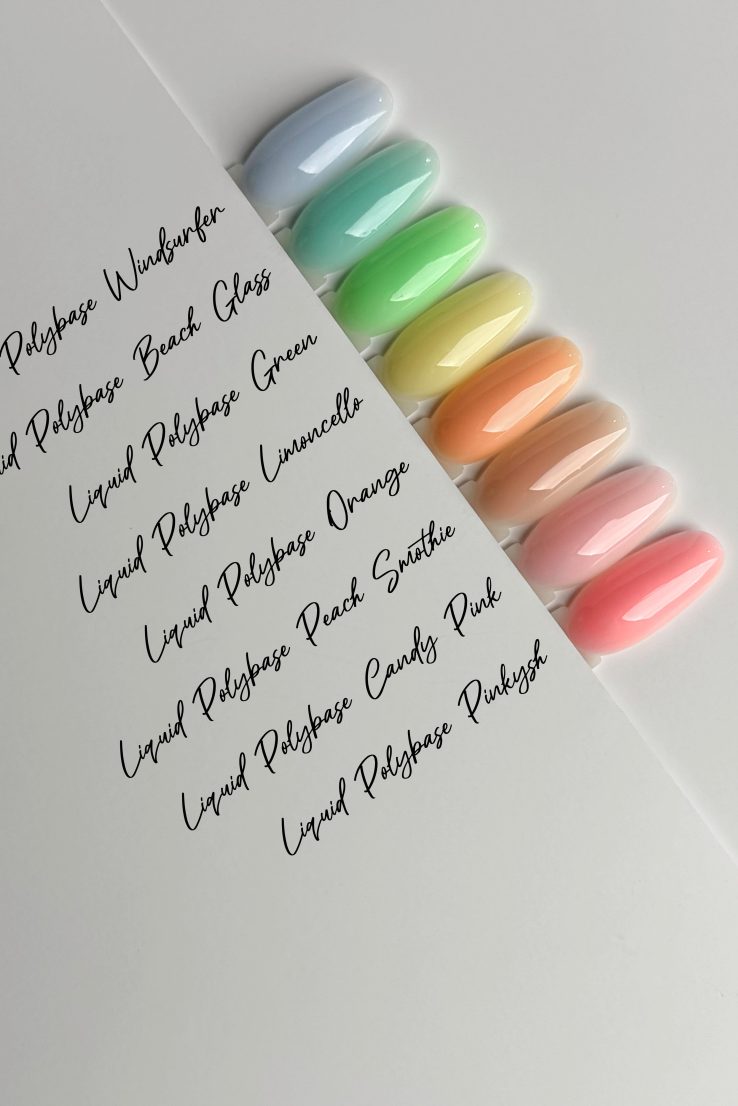 Polybase Windsurfer
id Polybase Beach Glass
Liquid Polybase Green
Liquid Polybase Limoncello
Liquid Polybase Orange
Liquid Polybase Peach Smothie
Liquid Polybase Candy Pink
Liquid Polybase Pinkysh